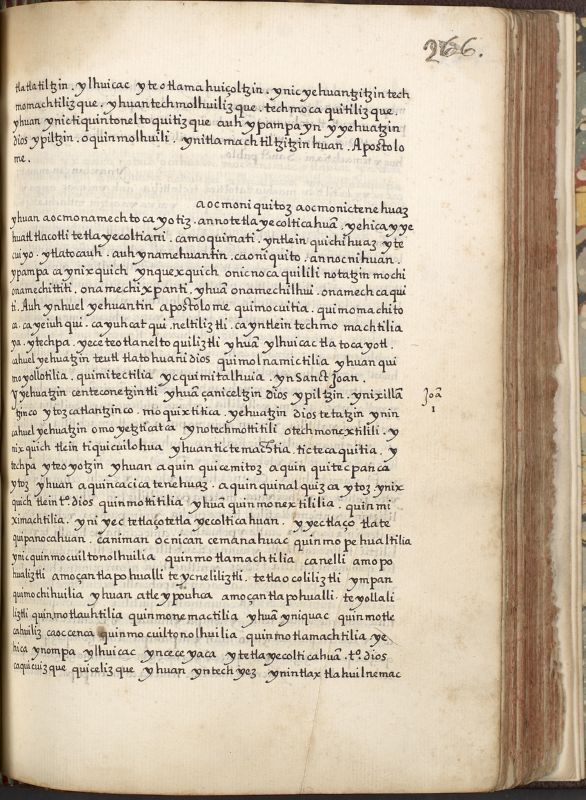 266.
tlatlatiltzin. ylhuicac yteotlamahuiçoltzin. ynic yehuantzitzin tech
momachtilizque. yhuan techmolhuilizque. techmocaquitilizque.
yhuan ynic tiquintoneltoquitizque auh ypampa yn yyehuatzin
dios ypiltzin. oquinmolhuili. ynitlamachtiltzitzinhuan. Apostolo
me.
aocmoniquitoz aocmonictenehuaz
yhuan aocmonamechtocayotiz. annotetlayecolticahuā. yehica yye
huatl tlacotli tetlayecoltiani. camoquimati. yntlein quichihuaz yte
cuiyo. ytlatocauh. auh ynamehuantin. caoniquito. annocnihuan.
ypampa ca ynixquich ynquexquich onicnocaquilili notatzin mochi
onamechittiti. onamechixpanti. yhuā onamechilhui. onamechcaqui
ti. Auh ynhuel yehuantin apostolome quimocuitia. quimomachito
ca. ca yeiuhqui. cayuhcatqui. neltiliztli. cayntlein techmomachtilia
ya. ytechpa. yeceteotlaneltoquiliztli yhuā ylhuicac tlatocayotl.
cahuel yehuatzin teutl tlatohuani dios quimolnamictilia yhuan qui
moyollotilia. quimitectilia yc quimitalhuia. yn Sanct Joan.
Yyehuatzin centeconetzintli yhuā çaniceltzin dios ypiltzin. ynixillā
tzinco ytozcatlantzinco. moquixtitica. yehuatzin dios tetatzin ynin
cahuel yehuatzin omoyetzticatca ynotechmottitili otechmonextilili. y
Joā
1
nixquich tlein tiquicuilohua yhuan tictemachtia. tictecaquitia. y
techpa yteoyotzin yhuan aquin quicemitoz aquin quitecpanca
ytoz yhuan aquin cacicatenehuaz. aquin quinalquizcaytoz ynix
quich tlein to. dios quinmottitilia yhuā quinmonextililia. quinmi
ximachtilia. yniyec tetlaçotetlayecolticahuan. yyectlaço tlate
quipanocahuan. çaniman ocnican cemanahuac quinmopehualtilia
ynic quinmocuiltonolhuilia quinmotlamachtilia canelli amopo
hualiztli amoçantlapohualli teycneliliztli. tetlaocoliliztli ympan
quimochihuilia yhuan atle ypouhca amoçantlapohualli. teyollali
liztli quinmotlauhtilia quinmonemactilia yhuā yniquac quinmotle
cahuiliz caoccenca quinmocuiltonolhuilia quinmotlamachtilia ye
hica ynompa ylhuicac ynceceyaca ytetlayecolticahuā. to. dios
caquicuizque quicelizque yhuan yntech yez ynintlaxtlahuilnemac